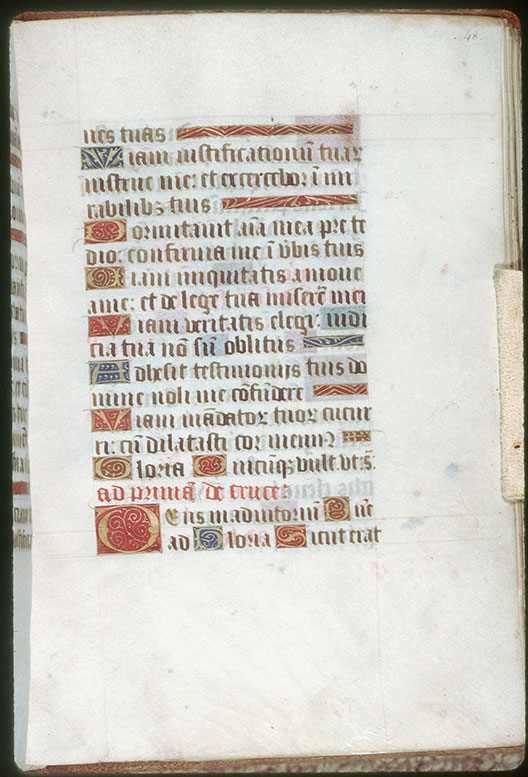 48
nes tuas
Viam iustificationū tuar
instrue me: et exercebor ī mi
rabilibꝫ tuis
Dormitauit aīa mea pre te
dio: confirma me ī v̄bis tuis
Viam iniquitatis amoue
a me: et de lege tua miserē mei
Viam veritatis elegi: iudi
cia tua nō sū oblitus
Adhesit testimonijs tuis do
mine noli me cōfūdere
Viam mādator tuor cucur
ri: cū dilatasti cor meum
Gloria Quicūqꝫ vult. vt. s.
ad primā de cruce
Deus in adiutoriū D
ad Gloria Sicut erat